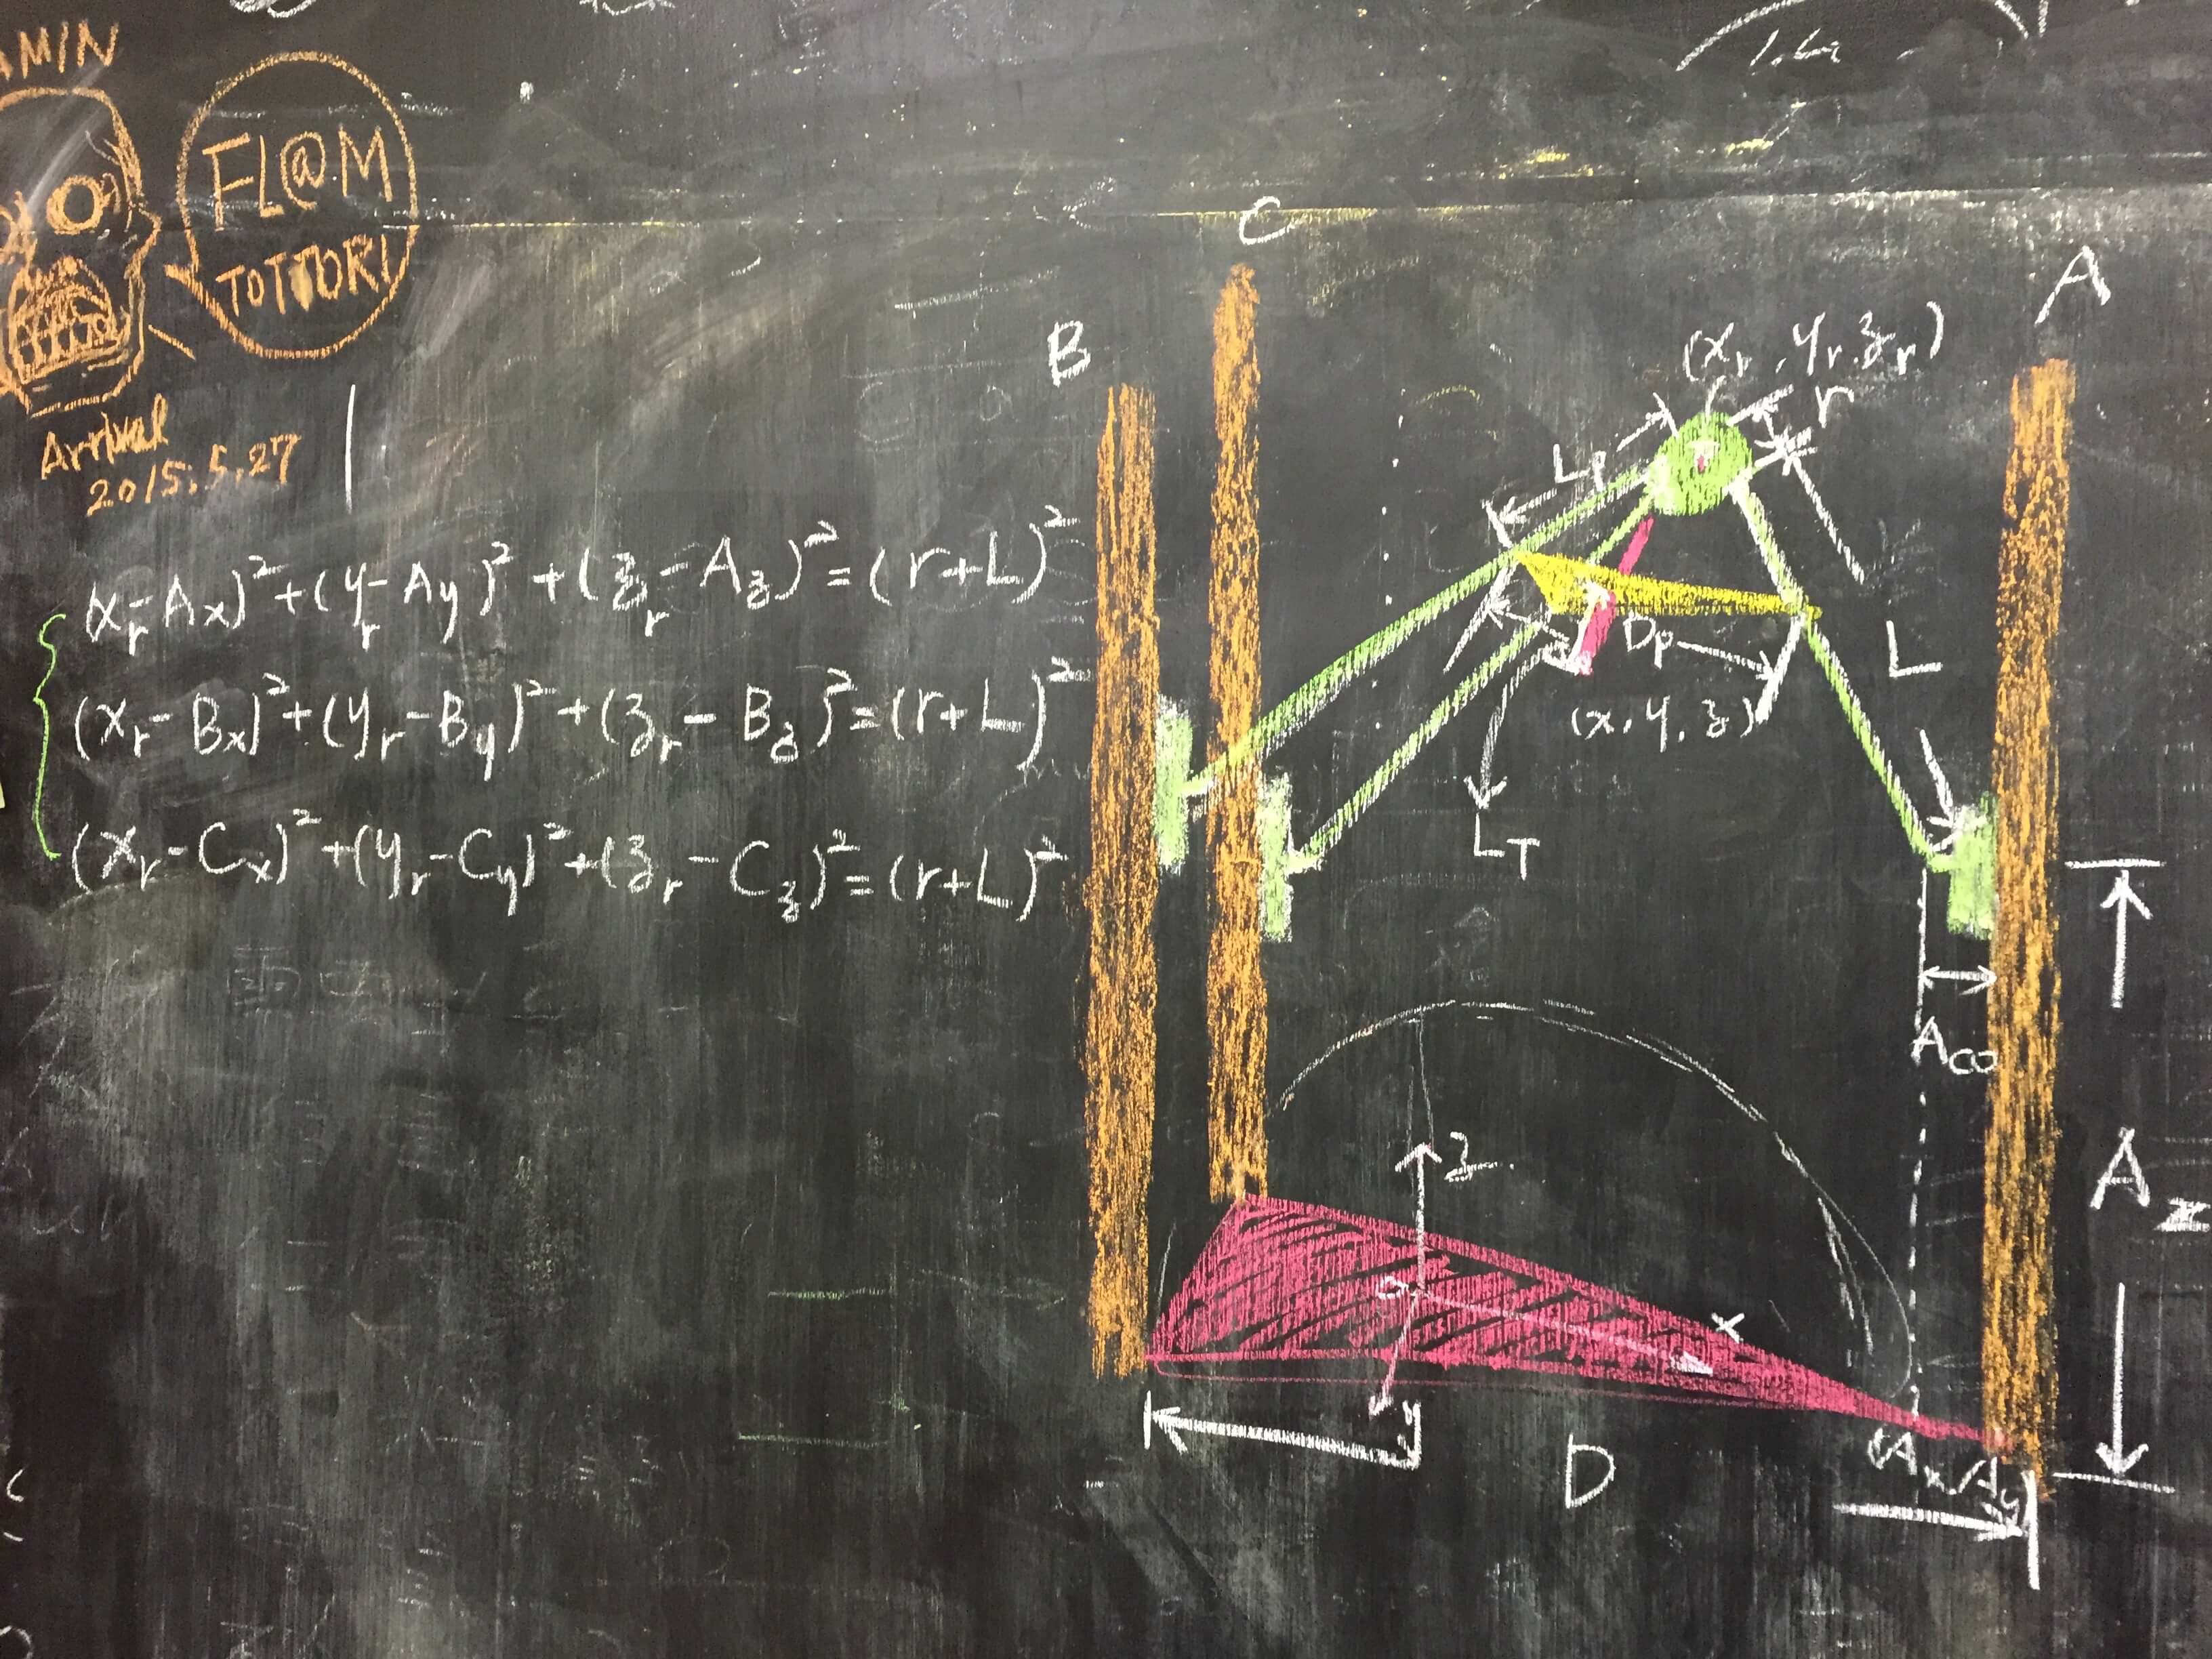 AMIN
FL@M
TOTTORI
Arrival
2015.5.27
(xr-Ax)²+(yr-Ay)²+(zr-Az)²=(r+L)²
(xr-Bx)²+(yr-By)²+(zr-Bz)²=(r+L)²
(xr-Cx)²+(yr-Cy)²+(zr-Cz)²=(r+L)²
C
B
A
(xr,yr,zr)
r
Lp
Dp
L
(x,y,z)
LT
Aco
Az
z
o
x
y
D
(Ax,Ay